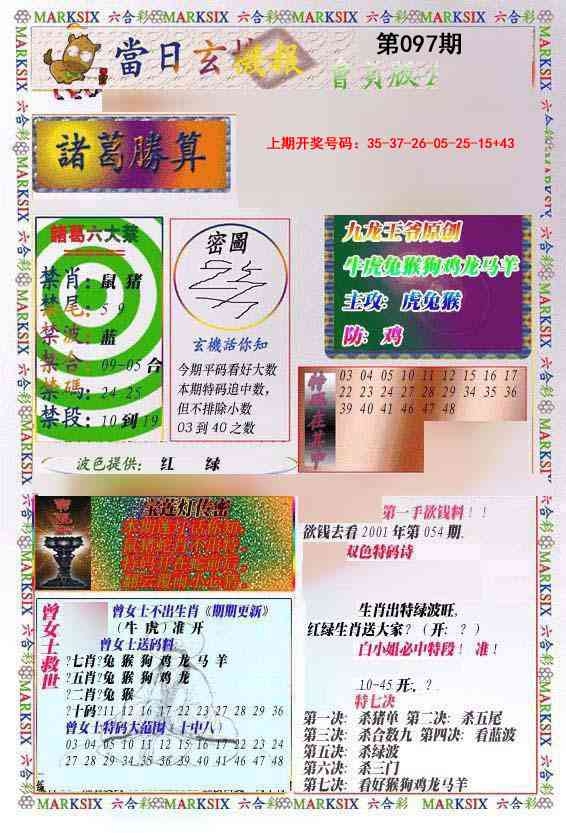 MARKSIX 六合彩 MARKSIX 六合彩 MARKSIX 六合彩 MARKSIX 六合彩 MARKSIX
當日玄機報
第097期
諸葛勝算
上期开奖号码：35-37-26-05-25-15+43
諸葛六大禁
禁肖：鼠 猪
禁尾：5 9
禁波：蓝
禁合：09-05 合
禁碼：24 25
禁段：10 到 19
密圖
玄機活你知
今期平码看好大数
本期特码追中数，
但不排除小数
03 到 40 之数
九龙王爷原创
牛虎兔猴狗鸡龙马羊
主攻：虎兔猴
防：鸡
特码在其中
03 04 05 10 11 12 15 16 17
22 23 24 27 28 29 34 35 36
39 40 41 46 47 48
波色提供：红 绿
宝莲灯传密
第一手欲钱料！！
欲钱去看 2001 年第 054 期．
双色特码诗
生肖出特绿波旺，
红绿生肖送大家？（开：？）
白小姐必中特段！ 准！
10-45 开．？
特七决
第一决：杀猪单 第二决：杀五尾
第三决：杀合数九 第四决：看蓝波
第五决：杀绿波
第六决：杀三门
第七决：看好猴狗鸡龙马羊
曾女士救世
曾女士不出生肖《期期更新》
（牛 虎）准 开
曾女士送码料
?七肖?兔 猴 狗 鸡 龙 马 羊
?五肖?兔 猴 狗 鸡 龙
?二肖?兔 猴
?十码?11 12 16 17 22 23 27 28 29 36
曾女士特码大范围（十中八）
03 04 05 10 11 12 15 16 17 22 23 24
27 28 29 34 35 36 39 40 41 46 47 48
MARKSIX 六合彩 MARKSIX 六合彩 MARKSIX 六合彩 MARKSIX 六合彩 MARKSIX